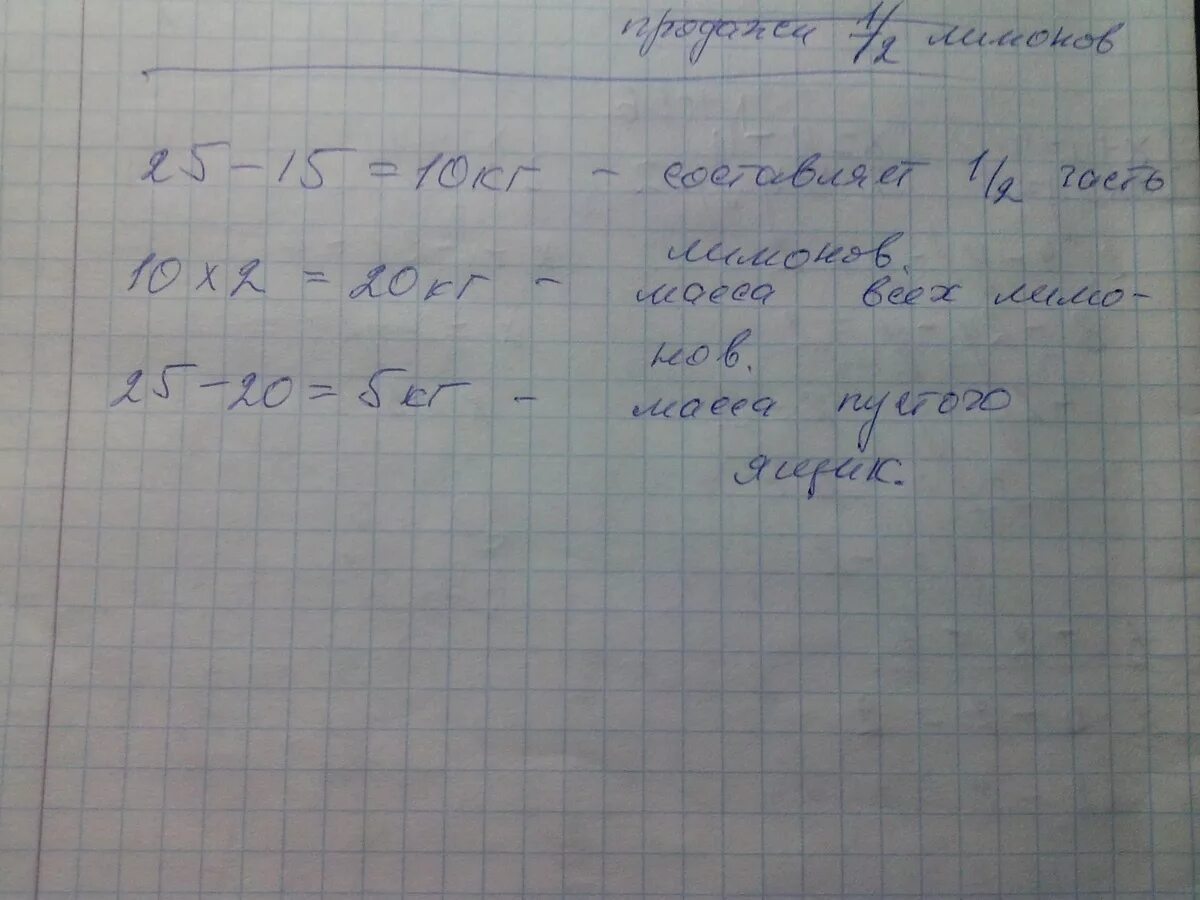 продажи 1/2 лимонов
25-15=10кг - составляет 1/2 часть
лимонов.
10×2=20кг - масса всех лимо-
нов.
25-20=5кг - масса пустого
ящик.